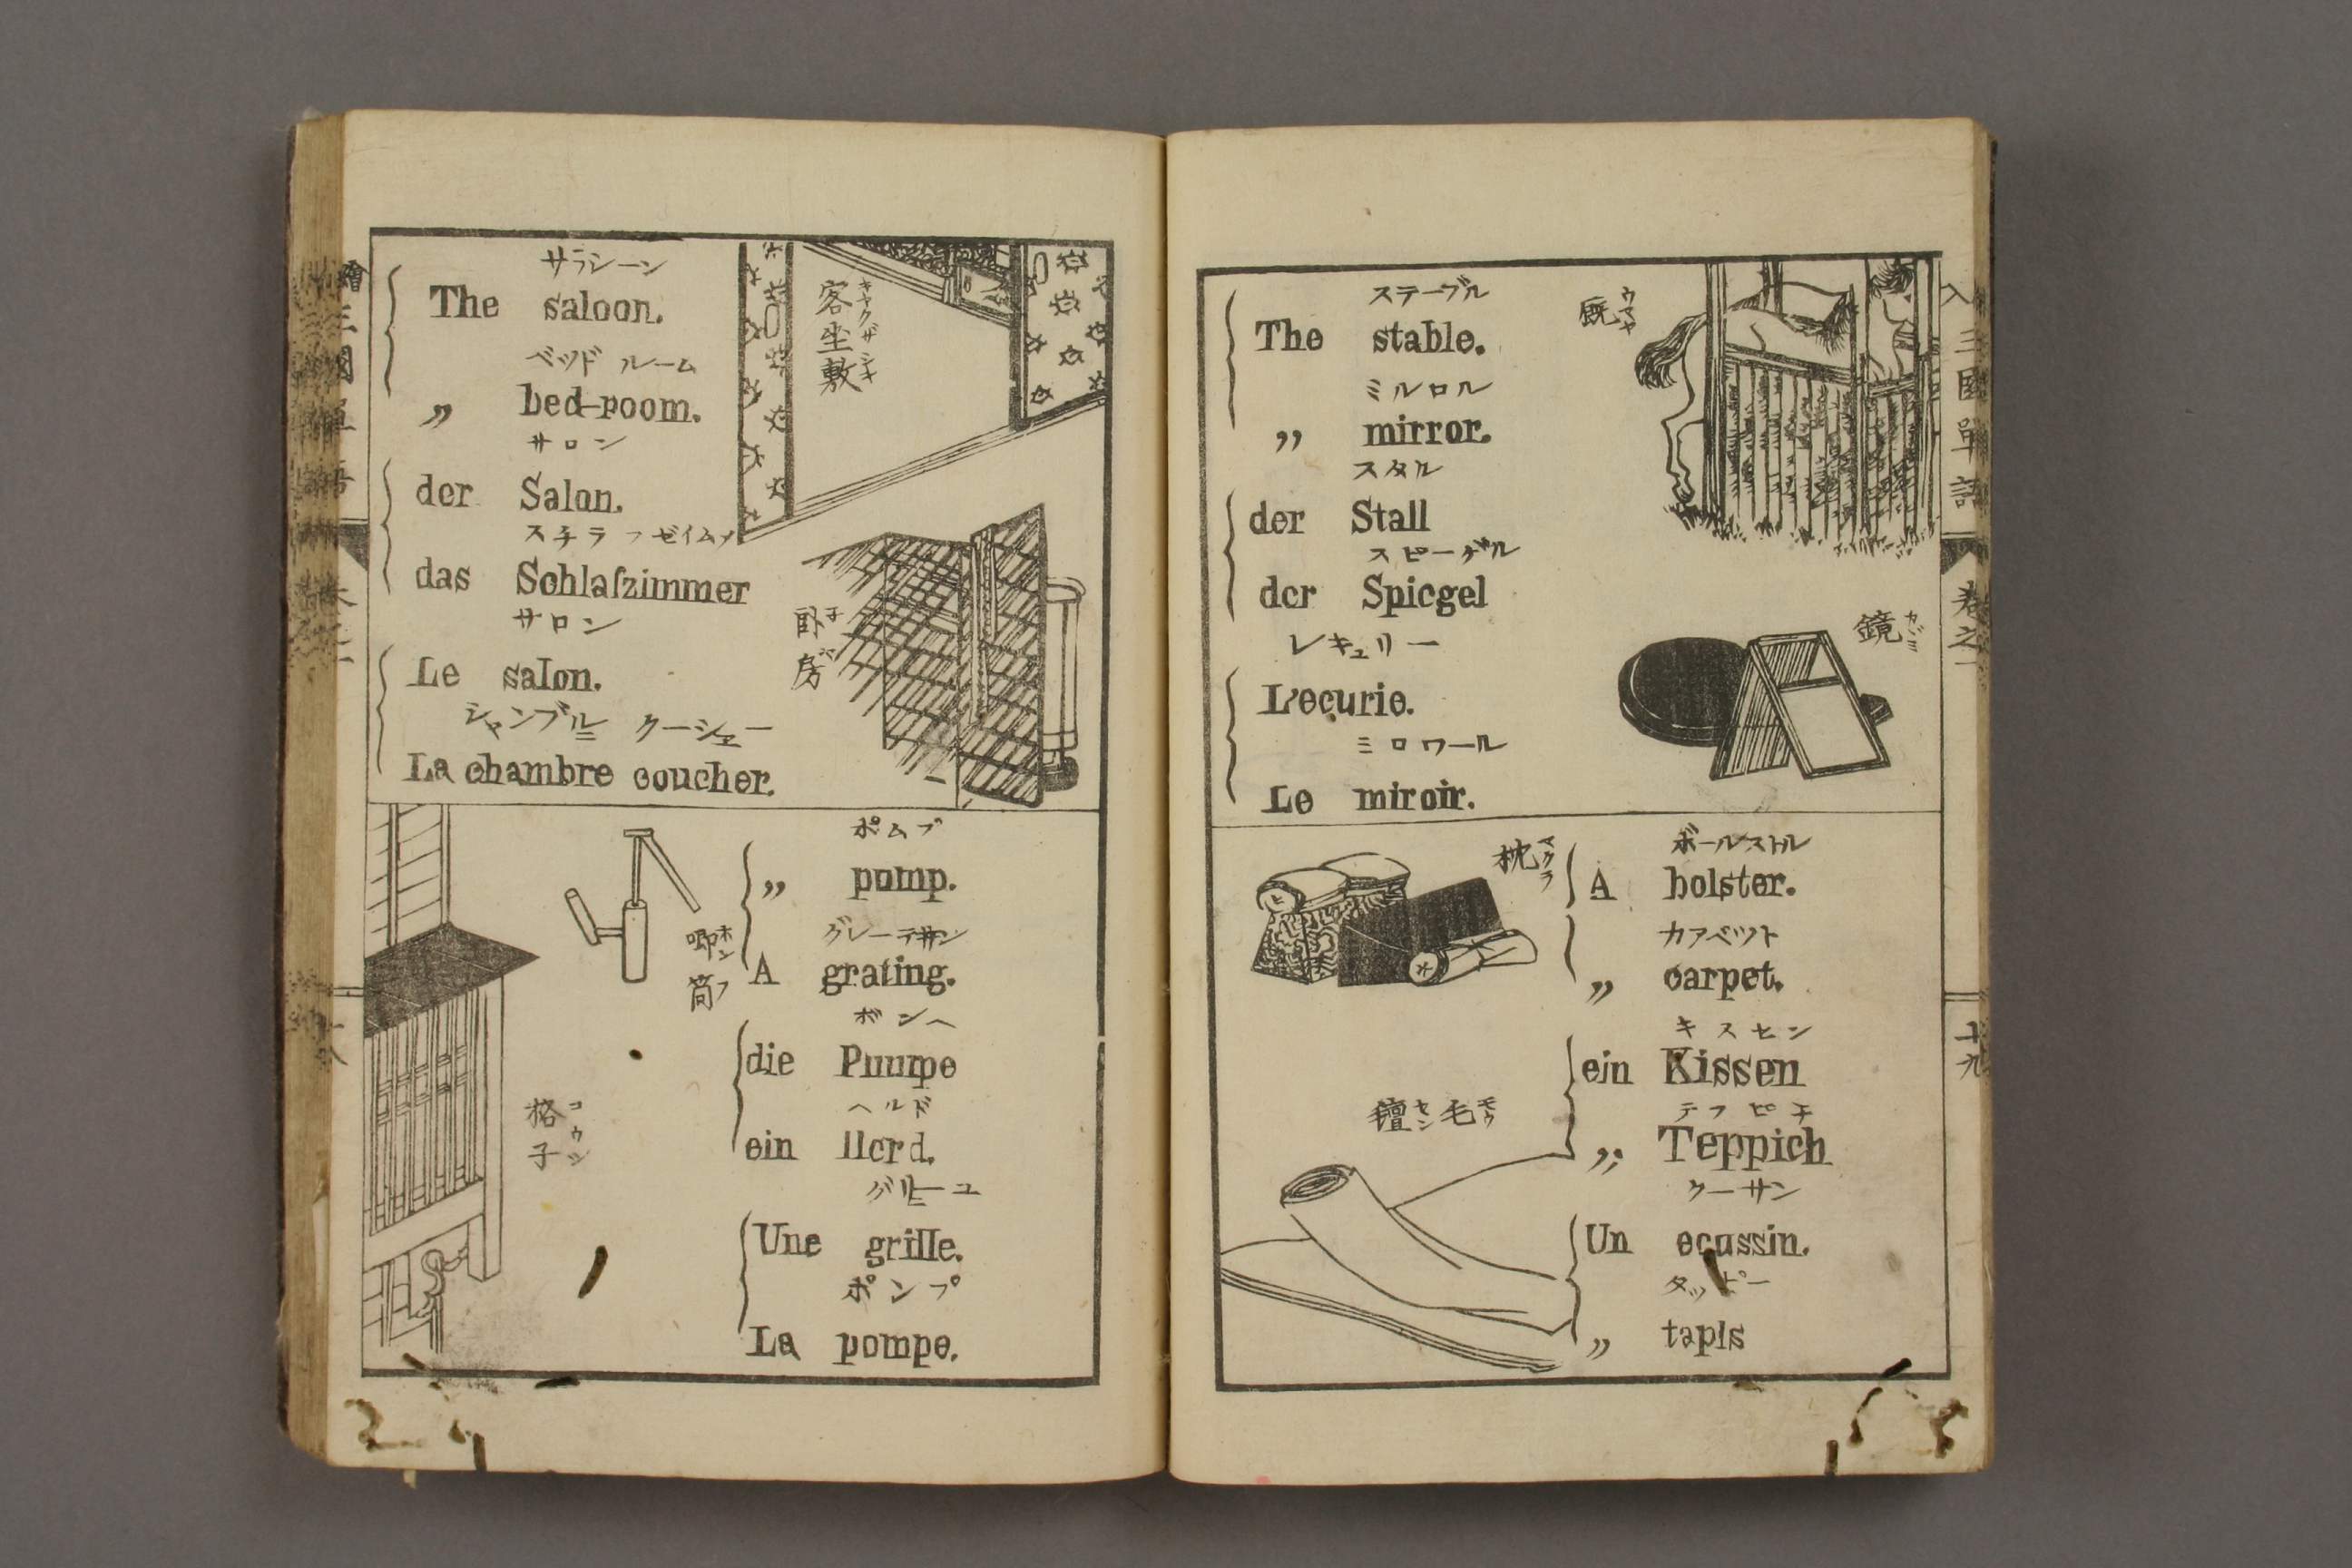 サラシーン
The saloon.
ベッド ルーム
„ bed-room.
サロン
der Salon.
das Schlafzimmer
サロン
Le salon.
シャンブル クーシェー
La chambre coucher.
客坐敷
キャクザシキ
卧房
ポムプ
„ pomp.
A grating.
ポンヘ
die Puumpe
ヘルド
ein Herd.
Une grille.
ポンプ
La pompe.
喞筒
ホンフ
格子
コウシ
ステーブル
The stable.
ミルロル
„ mirror.
スタル
der Stall
スピーゲル
der Spiegel
レキュリー
L'ecurie.
ミロワール
Le miroir.
厩
ウマヤ
鏡
カゞミ
ボールストル
A bolster.
カアペツト
„ carpet.
キスセン
ein Kissen
テフピチ
„ Teppich
クーサン
Un ocussin.
タッピー
„ tapis
枕
マクラ
毛氈
モウセン
三國單語
卷之一
十九